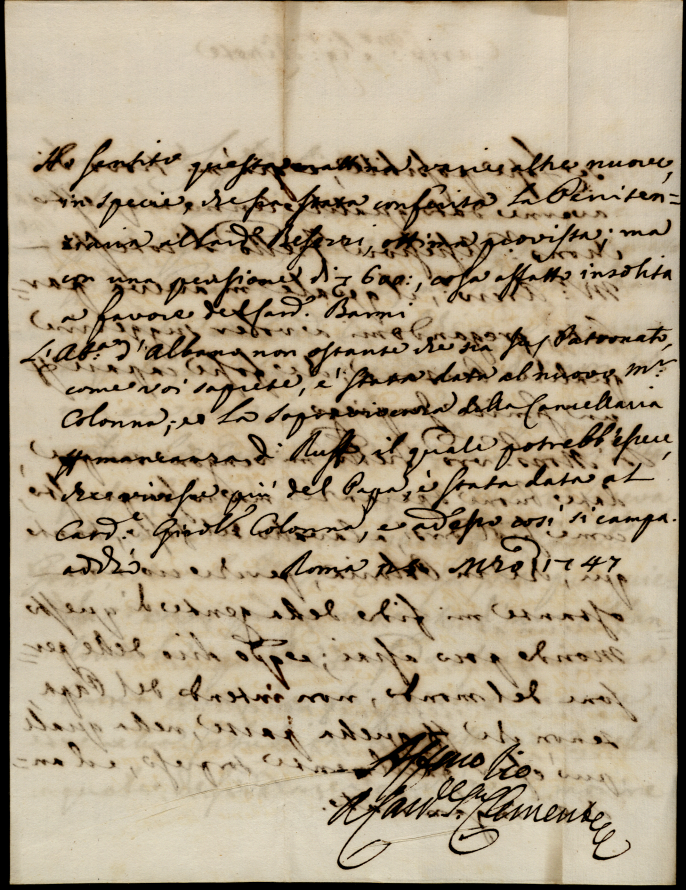 Ho sentito questa mattina varie altre nuove,
in specie, che sia stata conferita la Peniten=
ziaria al Card.e Besozzi, ottima provista; ma
con una pensione di 600:, cosa affatto insolita
a favore del Card. Barni
L'Ab.a d'Albano non ostante che sia Jus Patronato
come voi sapete, è stata data al nuovo M.r
Colonna, e la sopravivenza della Cancellaria
p mancanza di Ruffo il quale potrebb'essere,
che vivesse più del Papa, è stata data al
Card.e Girol.o Colonna, e adesso così si campa.
addio Roma Mzo 1747
Aff.mo Zio
Il Card.